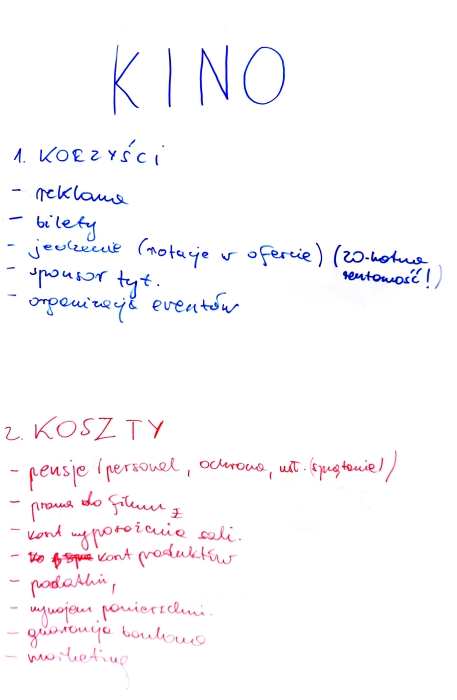 KINO
1. KORZYŚCI
- reklama
- bilety
- jedzenie (rotacje w ofercie) (20-krotna
rentowność!)
- sponsor tyt.
- organizacja eventów
2. KOSZTY
- pensje (personel, ochrona, usł. (sprzątanie))
- prawa do filmu
- koszt wyposażenia sali.
- koszt produktów
- podatki,
- wynajem powierzchni.
- gwarancja bankowa
- marketing